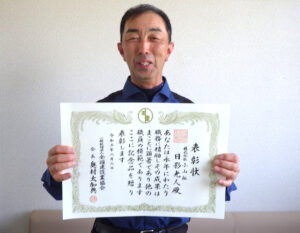 表彰状
日影光人殿
あなたは永年にわたり
職務に精励しその成果は
まことに顕著であり他の
職員の模範であります
ここに記念品を贈り
表彰します
会長 奥村太加典